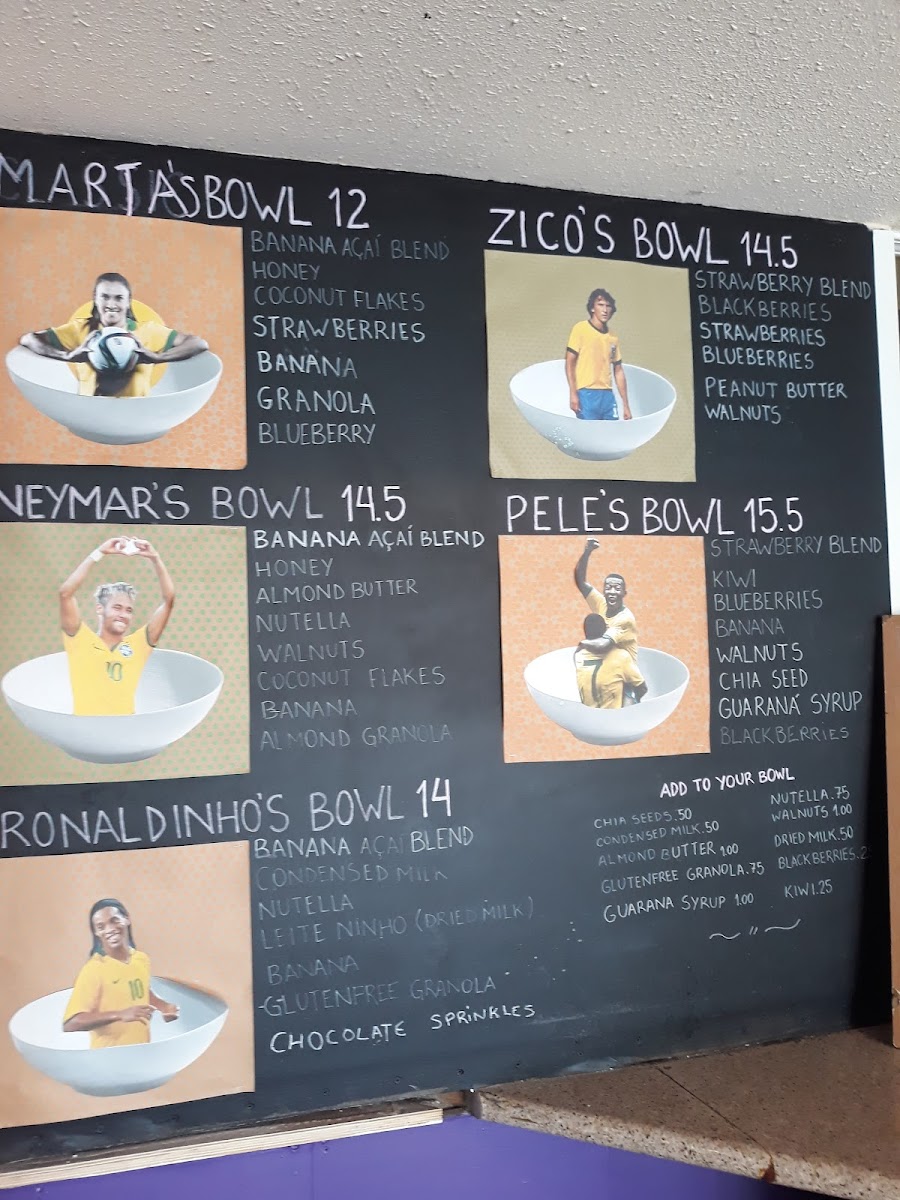 MARTA'S BOWL 12
BANANA AÇAÍ BLEND
HONEY
COCONUT FLAKES
STRAWBERRIES
BANANA
GRANOLA
BLUEBERRY
ZICO'S BOWL 14.5
STRAWBERRY BLEND
BLACKBERRIES
STRAWBERRIES
BLUEBERRIES
PEANUT BUTTER
WALNUTS
NEYMAR'S BOWL 14.5
BANANA AÇAÍ BLEND
HONEY
ALMOND BUTTER
NUTELLA
WALNUTS
COCONUT FLAKES
BANANA
ALMOND GRANOLA
10
PELE'S BOWL 15.5
STRAWBERRY BLEND
KIWI
BLUEBERRIES
BANANA
WALNUTS
CHIA SEED
GUARANÁ SYRUP
BLACKBERRIES
RONALDINHO'S BOWL 14
BANANA AÇAÍ BLEND
CONDENSED MILK
NUTELLA
LEITE NINHO (DRIED MILK)
BANANA
-GLUTENFREE GRANOLA
CHOCOLATE SPRINKLES
10
ADD TO YOUR BOWL
CHIA SEEDS .50
CONDENSED MILK .50
ALMOND BUTTER 1.00
GLUTENFREE GRANOLA .75
GUARANA SYRUP 1.00
NUTELLA .75
WALNUTS 1.00
DRIED MILK .50
BLACKBERRIES
KIWI .25